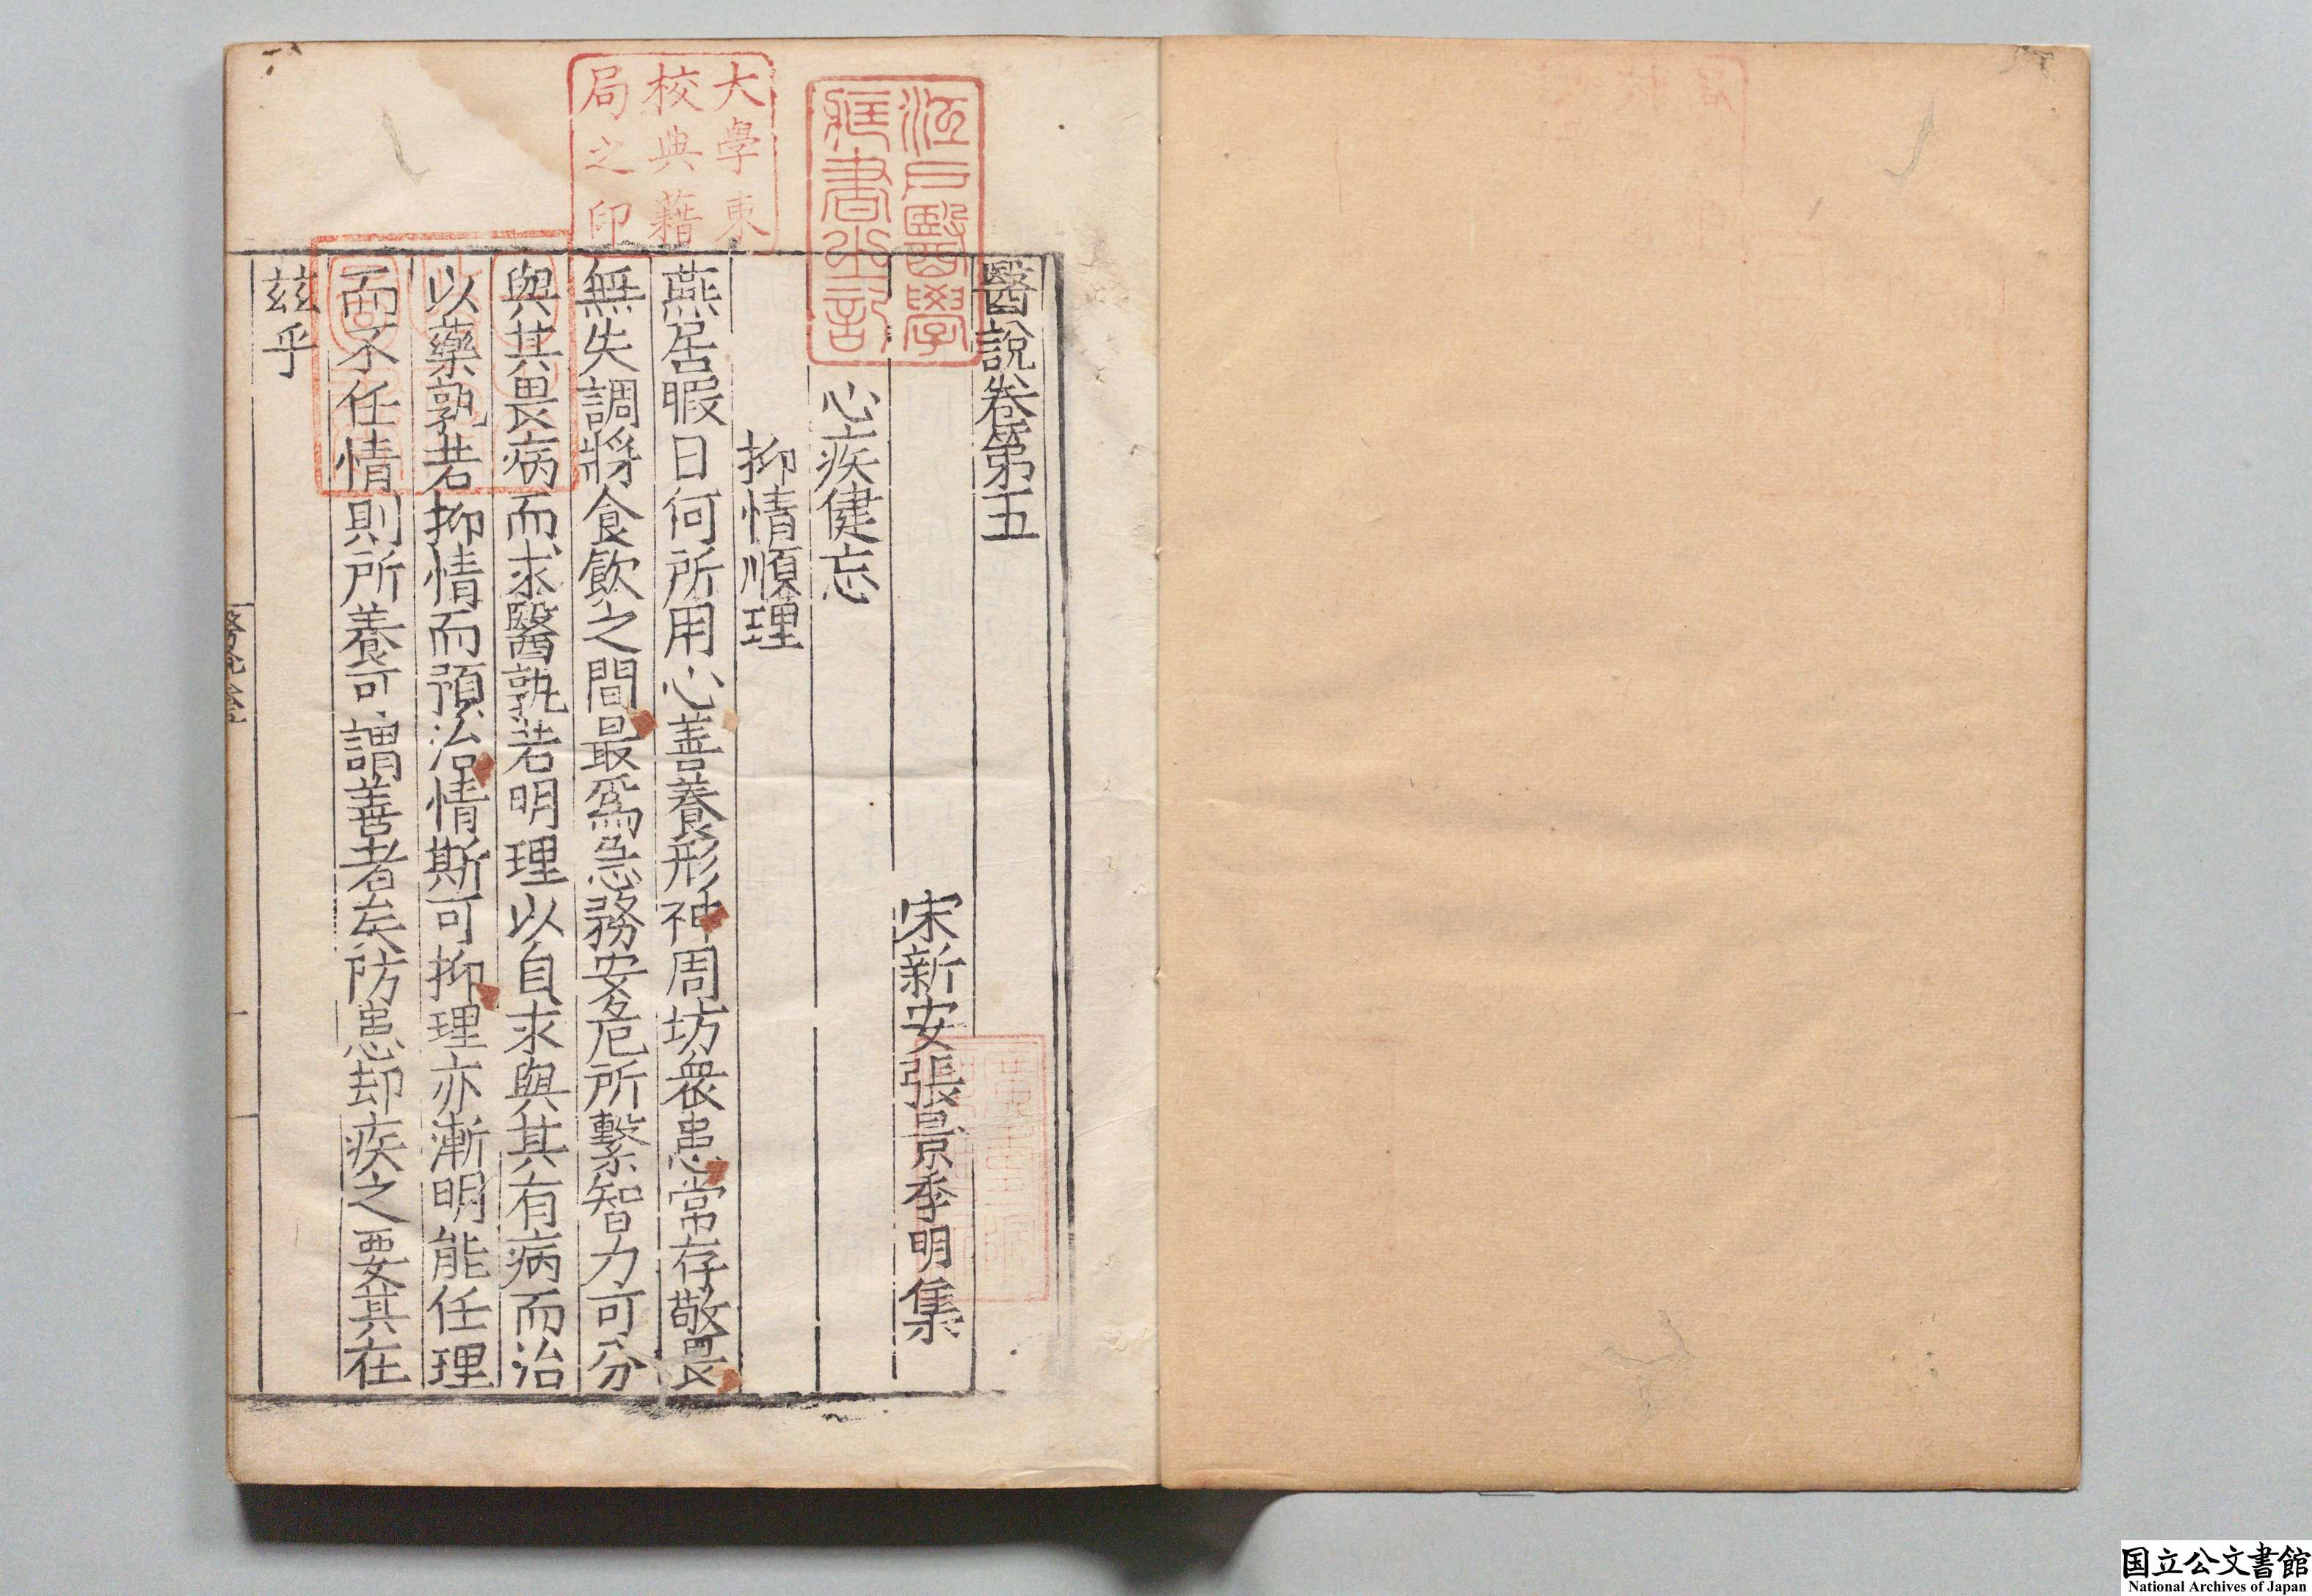 醫說卷第五
宋新安張景季明集
心疾健忘
抑情順理
燕居暇日何所用心善養形神周坊衆患常存敬畏
無失調將食飮之間最爲急務安危所繫智力可分
與其畏病而求醫孰若明理以自求與其有病而治
以藥孰若抑情而預治情斯可抑理亦漸明能任理
而不任情則所養可謂善者矣防患却疾之要其在
玆乎
江戶醫學
藏書之記
大學東
校典籍
局之印
国立公文書館
National Archives of Japan